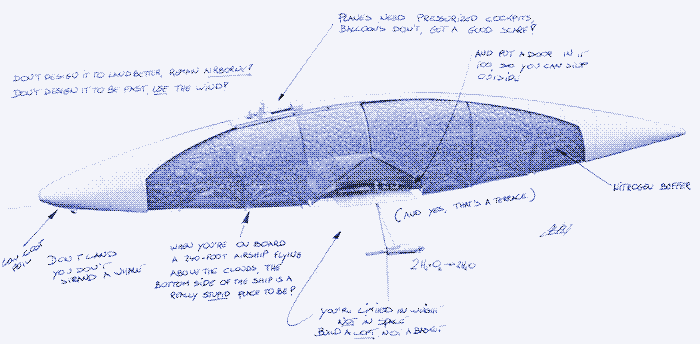 PLANES NEED PRESSURIZED COCKPITS,
BALLOONS DON'T, GET A GOOD SCARF!
AND PUT A DOOR IN IT
TOO, SO YOU CAN STEP
OUTSIDE
DON'T DESIGN IT TO LAND BETTER, REMAIN AIRBORNE!
DON'T DESIGN IT TO BE FAST, USE THE WIND!
NITROGEN BUFFER
(AND YES, THAT'S A TERRACE)
LOW COST
DON'T LAND
YOU DON'T
STRAND A WHALE
WHEN YOU'RE ON BOARD
A 240-FOOT AIRSHIP FLYING
ABOVE THE CLOUDS, THE
BOTTOM SIDE OF THE SHIP IS A
REALLY STUPID PLACE TO BE!
YOU'RE LIMITED IN WEIGHT
NOT IN SPACE
BUILD A LOFT NOT A BASKET